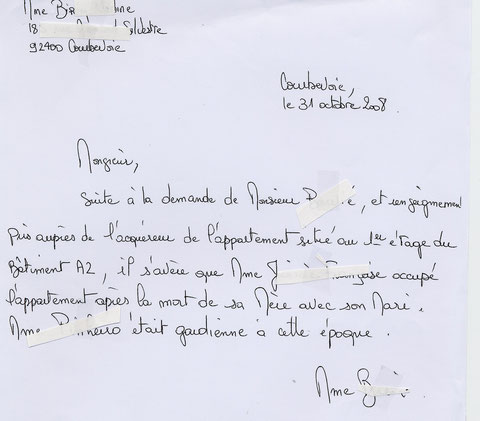 Mme
18 Sylvestre
92400 Courbevoie
Courbevoie,
le 31 octobre 2008.
Monsieur,
Suite à la demande de Monsieur , et renseignement
pris auprès de l'acquéreur de l'appartement situé au 1er étage du
Bâtiment A2, il s'avère que Mme occupé
l'appartement après la mort de sa Mère avec son Mari.
Mme était gardienne à cette époque.
Mme